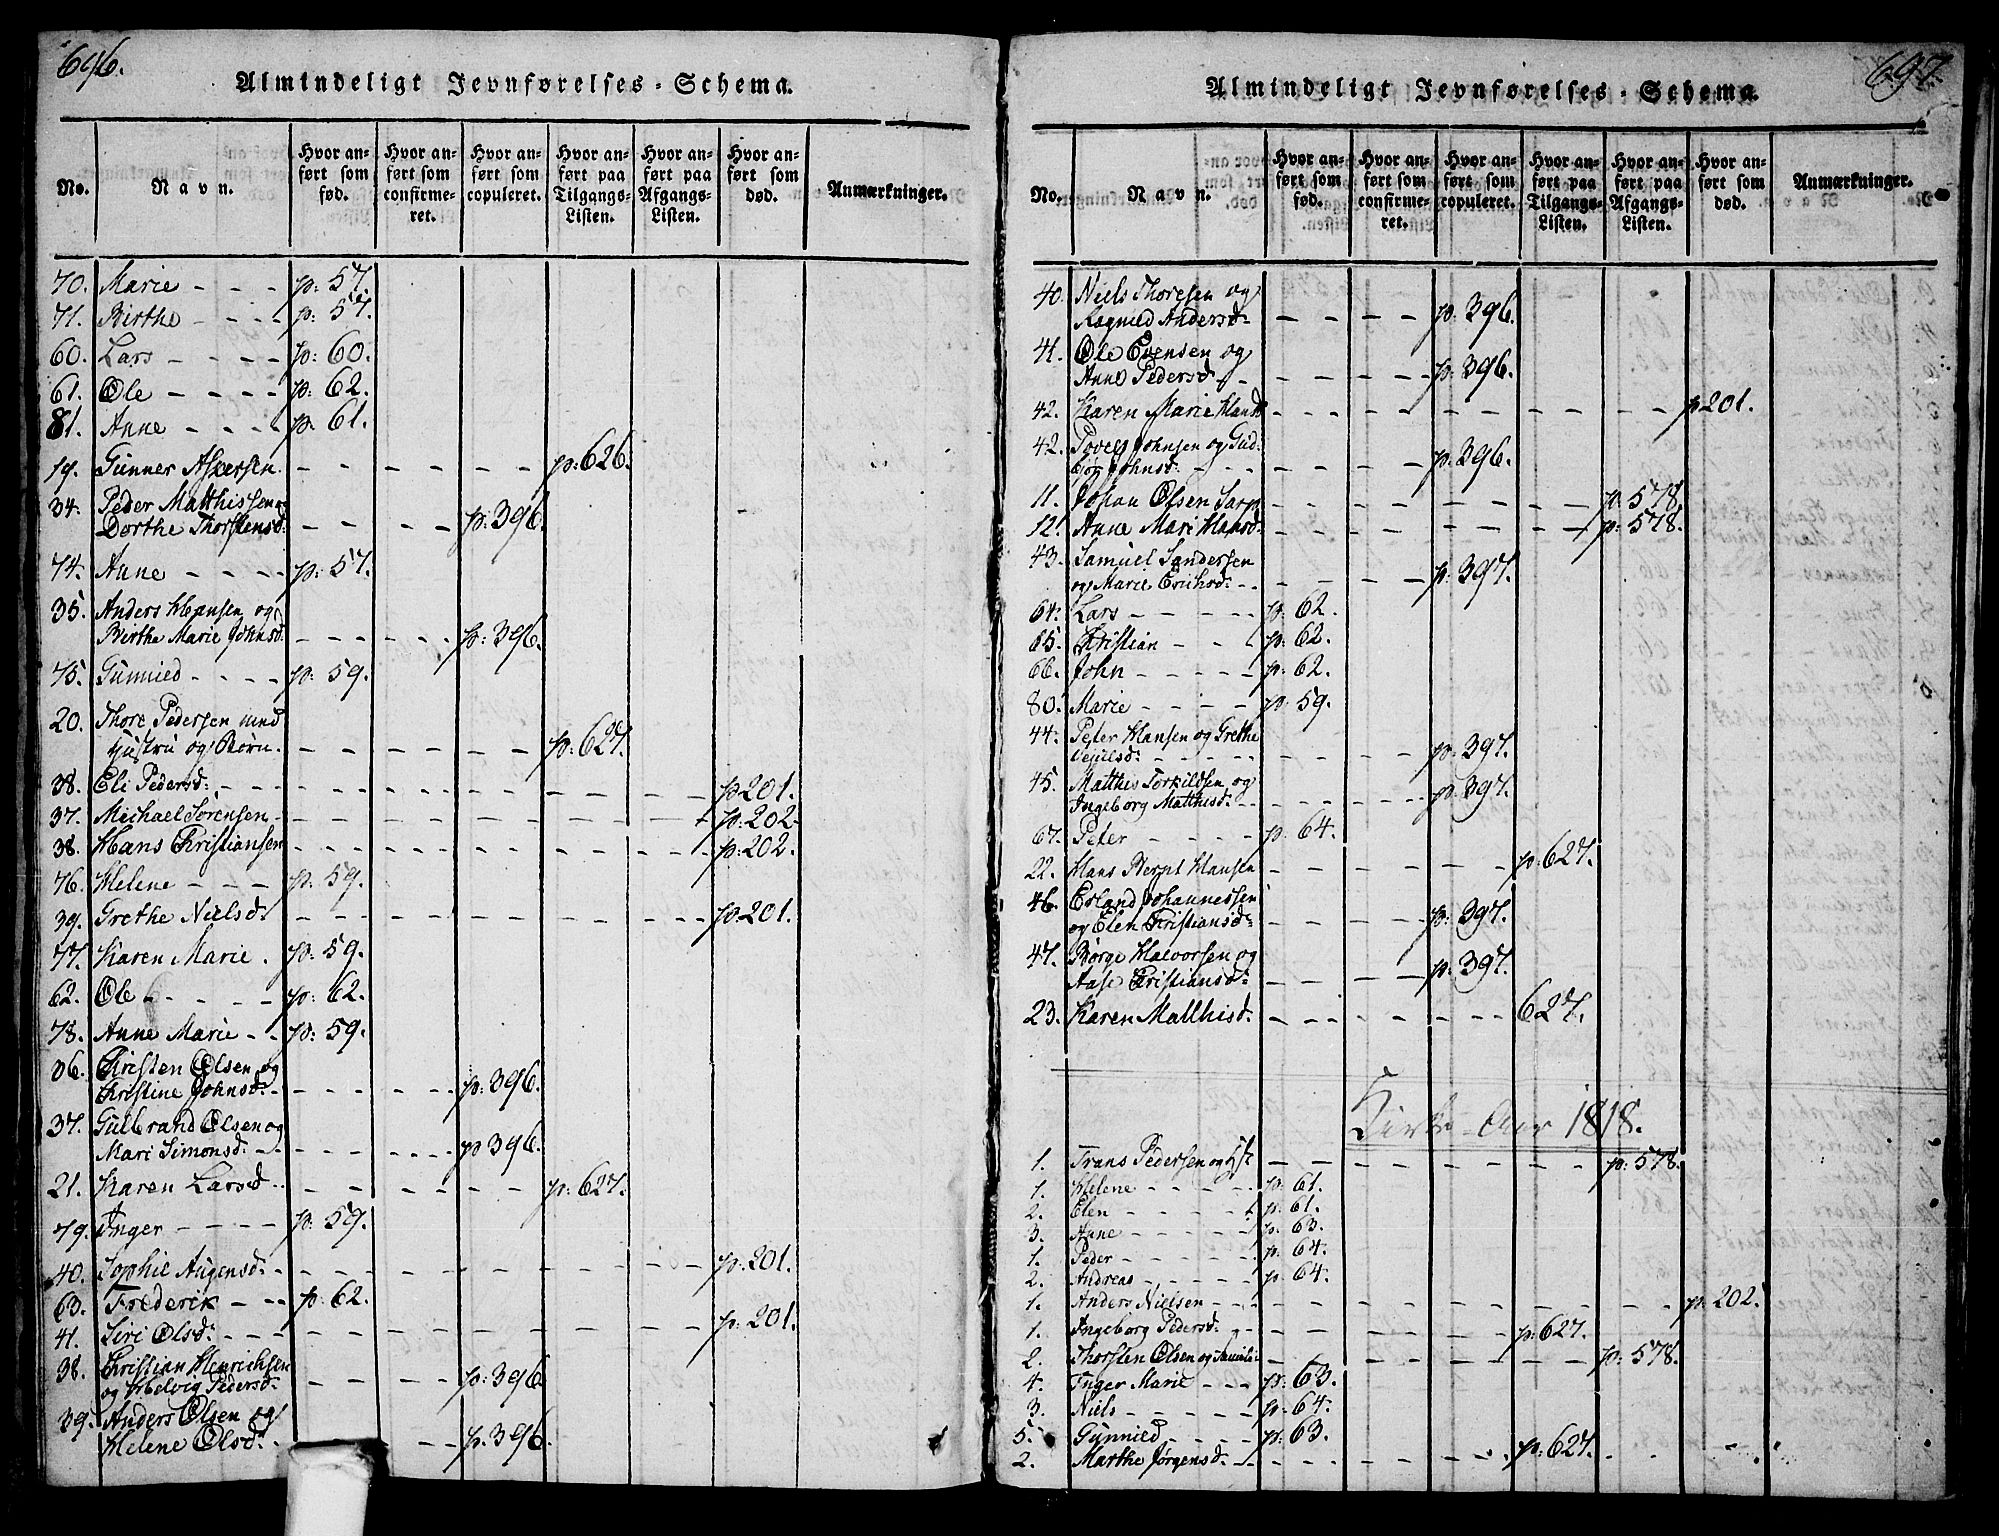 696.
Almindeligt Jevnførelses-Schema.
No. Navn. Hvor anført som fød. Hvor anført som confirmeret. Hvor anført som copuleret. Hvor anført paa Tilgangs-Listen. Hvor anført paa Afgangs-Listen. Hvor anført som død. Anmærkninger.
70. Marie - - - p: 57.
71. Birthe - - - - p: 57.
60. Lars - - - - p: 60.
61. Ole - - - - p: 62.
81. Anne - - - p. 61.
19. Gunner Aspersen. - - - - - - p: 626.
34. Peder Matthissen og
Dorthe Thorstensd: - - - - p: 396.
74. Anne - - - - p: 57.
35. Anders Hansen og
Birthe Marie Johnsd. - - - - - p: 396.
75. Gunnied - - - - p: 59.
20. Thore Pedersen med
Hustru og Børn. - - - - - - p: 627.
38. Eli Pedersd: - - - - - - - - p: 201.
37. Michael Sørensen - - - - - - - - p: 202.
38. Hans Christiansen - - - - - - - - p: 202.
76. Helene - - - p: 59.
39. Grethe Nielsd: - - - - - - - - p: 201.
77. Karen Marie . p: 59.
62. Ole - - - - p: 62.
78. Anne Marie - - p: 59.
36. Christen Olsen og
Christine Johnsd: - - - - - p: 396.
37. Gulbrand Olsen og
Mari Simonsd: - - - - - - p 396.
21. Karen Larsd - - - - - - p: 627.
79. Inger - - - - p: 59.
40. Sophie Augensd: - - - - - - - - p: 201.
63. Frederik - - - p: 62.
41. Siri Olsd: - - - - - - - - p: 201.
38. Christian Henrichsen
og Helvig Pedersd: - - - - p: 396.
39. Anders Olsen og
Helene Olsd: - - - p. 396.
697.
Almindeligt Jevnførelses-Schema.
No. Navn. Hvor anført som fød. Hvor anført som confirmeret. Hvor anført som copuleret. Hvor anført paa Tilgangs-Listen. Hvor anført paa Afgangs-Listen. Hvor anført som død. Anmærkninger.
40. Niels Thoresen og
Ragnied Andersd: - - - - p: 396.
41. Ole Evensen og
Anne Pedersd - - - - - p: 396.
42. Karen Marie Hansd - - - - - - - - p 201.
42. Povel Johnsen og Gud-
bjør Johnsd: - - - - - p: 396.
11. Johan Olsen Sarp - - - - - - - p: 578.
12. Anne Mari Hansd: - - - - - - - p: 578.
43. Samuel Sandersen
og Marie Erichsd: - - - - - p: 397.
64. Lars - - - - - p: 62.
65. Christian - - - p: 62.
66. John - - - - - p: 62.
80. Marie - - - - p: 59.
44. Peter Hansen og Grethe
- - - - p: 397.
45. Matthis Torkildsen og
Ingeborg Matthisd: - - - - - p: 397.
67. Peter - - - - p: 64.
22. Hans Bernt Hansen - - - - - - p: 627.
46. Erland Johannessen
og Elen Christiansd: - - - - p: 397.
47. Børge Halvorsen og
Aase Christiansd: - - - - p: 397.
23. Karen Matthisd. - - - - - - 627.
Kirke-Aar 1818.
1. Frans Pedersen og Hst - - - - - - - p: 578.
1. Helene - - - - p: 61.
2. Elen - - - - p: 61.
3. Anne - - - - p: 63.
1. Peder - - - - p: 64.
2. Andreas - - - - p: 64.
1. Anders Nielsen - - - - - - - - p: 202.
1. Ingeborg Pedersd. - - - - - - p: 627.
2. Thorsten Olsen og Famile: - - - - - - - p: 578.
4. Inger Marie - - - p: 63.
3. Niels - - - - - p: 64.
5. Gunnied - - - - p: 63.
2. Marthe Jørgensd. - - - - - - p: 627.